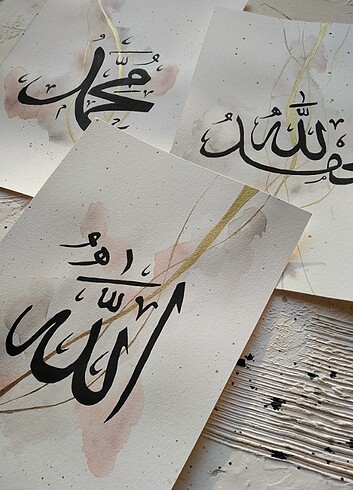 محمد
الحمد لله
الله